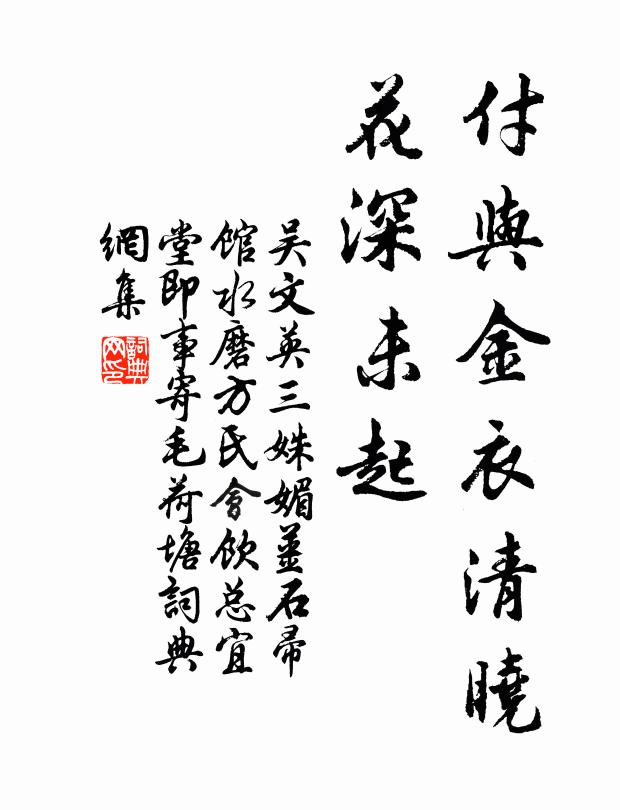 付與金衣清曉
花深未起
吴文英三姝媚薑石帚
館水磨方氏會飲总宜
堂即事寄毛荷塘詞典
網集
詞典
网印